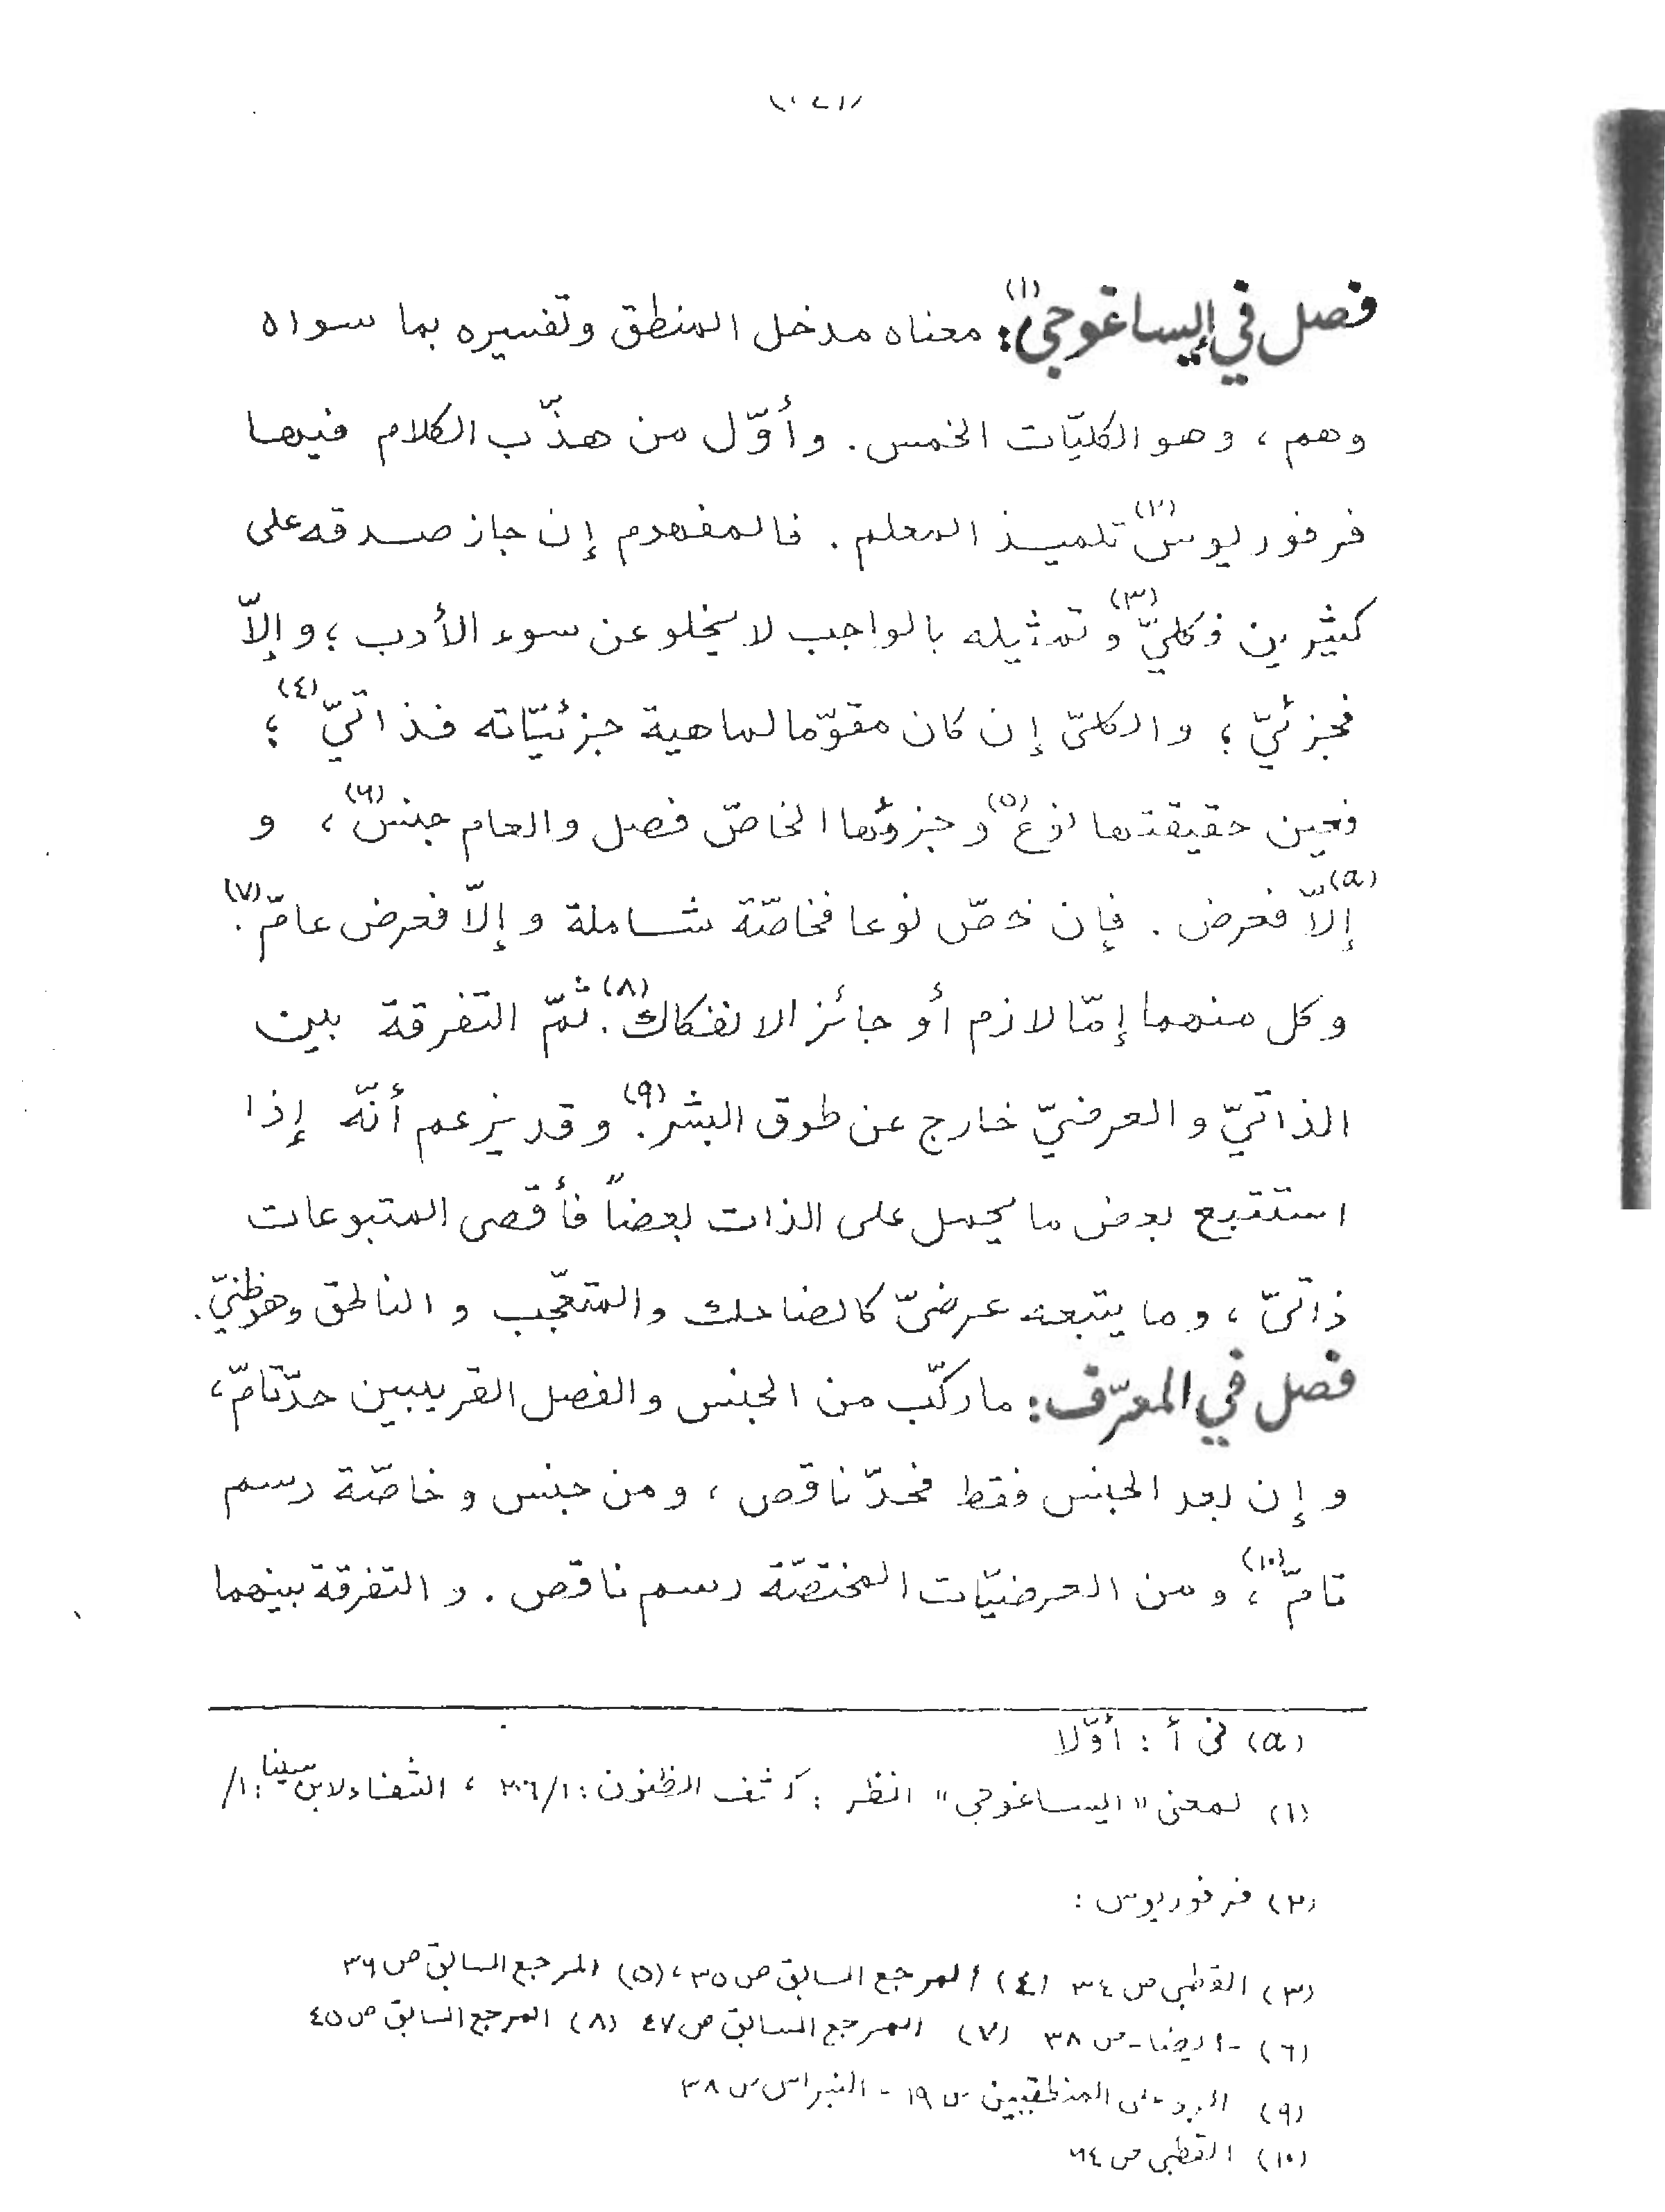 فصل في إيساغوجي(١): معناه مدخل المنطق وتفسيره بما سواه
وهم ، وهو الكليّات الخمس . وأوّل من هذّب الكلام فيها
فرفوريوس(٢) تلميذ المعلم . فالمفهوم إن جاز صدقه على
كثيرين فكليّ(٣) وتمثيله بالواجب لا يخلو عن سوء الأدب ؛ وإلاّ
فجزئيّ ؛ والكلىّ إن كان مقوّما لماهية جزئيّاته فذاتيّ(٤) ؛
فعين حقيقتها نوع(٥) وجزؤها الخاصّ فصل والعام جنس(٦) ، و
إلاّ(a) فعرض . فإن خصّ نوعا فخاصّة شاملة وإلاّ فعرض عامّ(٧) .
وكل منهما إمّا لازم أو جائز الانفكاك(٨) . ثمّ التفرقة بين
الذاتيّ والعرضيّ خارج عن طوق البشر(٩) . وقد يزعم أنّه إذا
استتبع بعض ما يحمل على الذات بعضاً فأقصى المتبوعات
ذاتىّ ، وما يتبعه عرضىّ كالضاحك والمتعجّب والناطق وهو ظنيّ .
فصل في المعرّف : ما ركّب من الجنس والفصل القريبين حدّ تامّ ،
وإن بعد الجنس فقط فحدّ ناقص ، ومن جنس وخاصّة رسم
تامّ(١٠) ، ومن العرضيّات المختصّة رسم ناقص . والتفرقة بينهما
(a) فى أ : أوّلا
(١) لمعنى "ايساغوجى" انظر : كشف الظنون : ٢٠٦/١ ، الشفاء لابن سينا : ١/
(٢) فرفوريوس :
(٣) القطبى ص ٣٤ (٤) المرجع السابق ص ٣٥ ، (٥) المرجع السابق ص ٣٦
(٦) - ايضا - ص ٣٨ (٧) المرجع السابق ص ٤٧ (٨) المرجع السابق ص ٤٥
(٩) الرد على المنطقيين ص ١٩ - النبراس ص ٣٨
(١٠) القطبى ص ٦٤